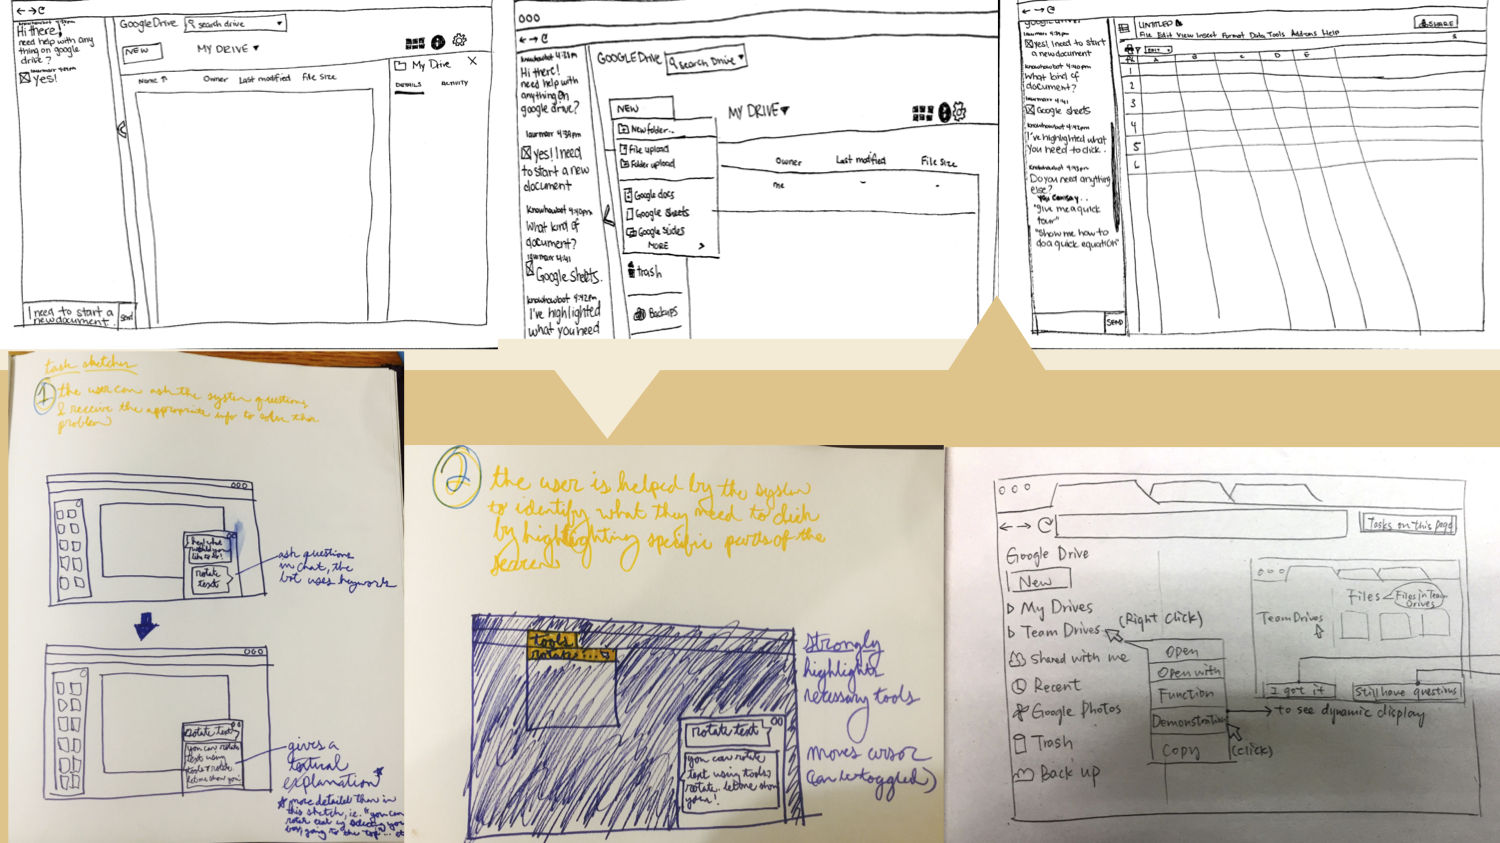 knowhowbot 4:39pm
Hi there!
need help with any
thing on google
drive?
laurmarr 4:39pm
yes!
I need to start a
new document.
Send
Google Drive
search drive
NEW
MY DRIVE
Name ↑
Owner
Last modified
File size
My Drive
X
DETAILS
ACTIVITY
Hi there!
need help with
anything on
google drive?
laurmarr 4:39pm
yes! I need
to start a new
document
knowhowbot 4:40pm
What kind of
document?
laurmarr 4:41
Google sheets.
knowhowbot 4:42pm
I've highlighted
what you need
GOOGLE Drive
search Drive
NEW
New folder...
File upload
Folder upload
Google docs
Google sheets
Google slides
MORE >
trash
Backups
MY DRIVE
Owner
Last modified
File size
me
-
-
yes! I need to start
a new document
What kind of
document?
Google sheets
I've highlighted what
you need to click.
Do you need anything
else?
you can say..
"give me a quick
tour"
"show me how to
do a quick equation"
SEND
UNTITLED
SHARE
File Edit View Insert Format Data Tools Add-ons Help
A B C D E
1
2
3
4
5
6
task sketches
1 the user can ask the system questions
& receive the appropriate info to solve their
problem
hey! what
would you
like to do?
rotate
text
ask questions
in chat, the
bot uses keywords
rotate text
you can rotate
text using
tools > rotate.
let me show you!
gives a
textual
explanation*
* more detailed than in
this sketch, i.e. "you can
rotate text by selecting your
box, going to the top"...
2 the user is helped by the system
to identify what they need to click
by highlighting specific parts of the
screen
tools
rotate...
rotate text
you can rotate
text using tools
rotate. let me show
you!
strongly
highlights
necessary tools
moves cursor
(can be toggled)
Tasks on this page
Google Drive
New
My Drives
Team Drives
Shared with me
Recent
Google Photos
Trash
Back up
(Right Click)
Open
Open with
Function
Demonstration
Copy
(click)
→ to see dynamic display
Files < Files in Team
Drives
Team Drives
I got it
Still have questions